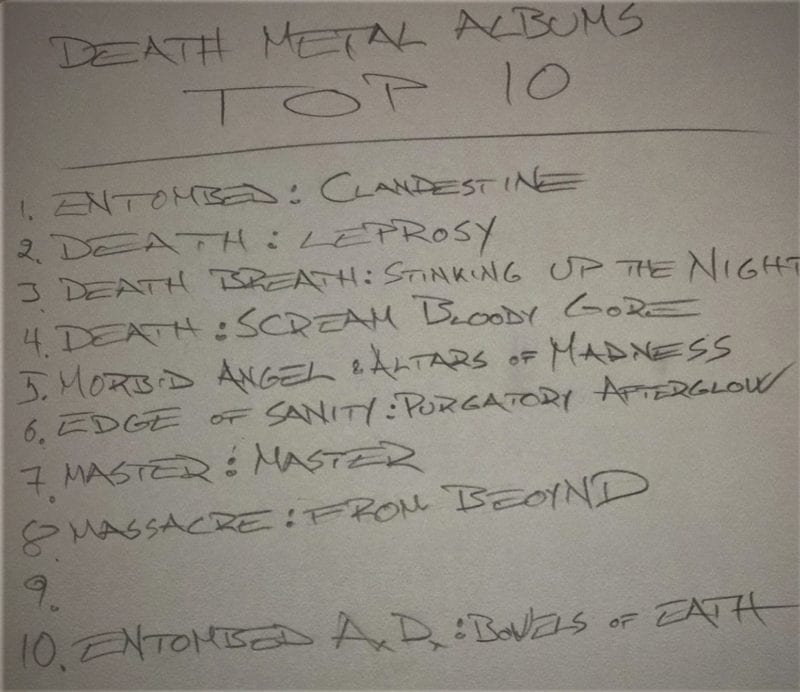 DEATH METAL ALBUMS
TOP 10
1. ENTOMBED: CLANDESTINE
2. DEATH: LEPROSY
3 DEATH BREATH: STINKING UP THE NIGHT
4. DEATH: SCREAM BLOODY GORE
5. MORBID ANGEL : ALTARS OF MADNESS
6. EDGE OF SANITY: PURGATORY AFTERGLOW
7. MASTER: MASTER
8 MASSACRE: FROM BEOYND
9.
10. ENTOMBED A.D.: BOWELS OF EATH